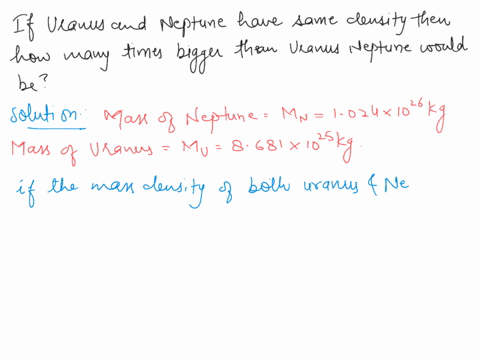 If Uranus and Neptune have same density then
how many times bigger than Uranus Neptune would
be?
Solution: Mass of Neptune = M_N = 1.024 × 10^26 kg
Mass of Uranus = M_U = 8.681 × 10^25 kg.
if the mass density of both uranus & Ne